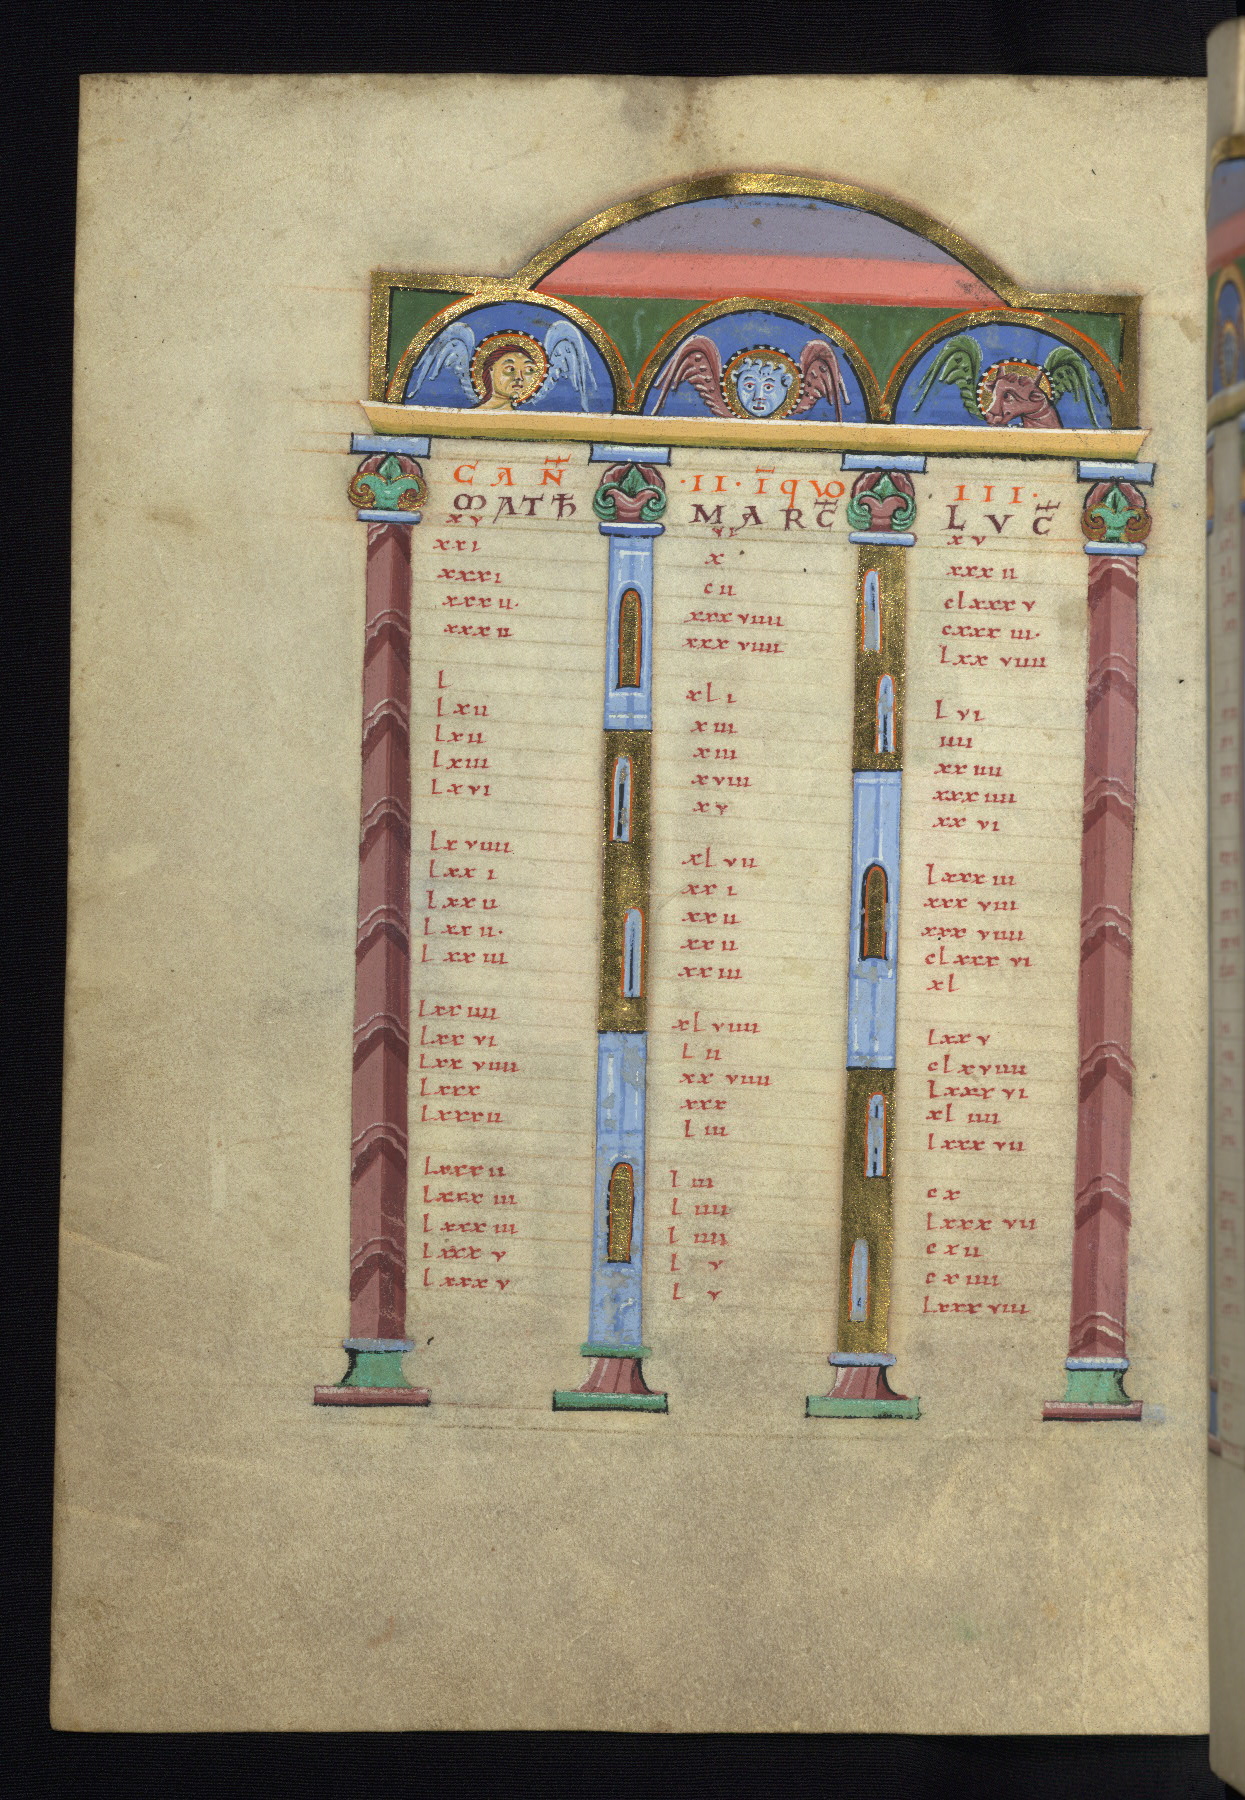 CAN̄ ·II· ĪqVO · III·
MATħ MARC̄ LVC̄
xv vi xv
xxi x xxxii
xxxi cii clxxxv
xxxii· xxxviiii cxxxiii·
xxxii xxxviiii Lxxviiii
L xLi Lvi
Lxii xiii iiii
Lxii xiii xxiiii
Lxiii xviii xxxiiii
Lxvi xv xxvi
Lxviiii xLvii Lxxxiii
Lxxi xxi xxxviii
Lxxii xxii xxxviiii
Lxxii· xxii cLxxxvi
Lxxiii xxiii xL
Lxxiiii xLviiii Lxxv
Lxxvi Lii cLxviiii
Lxxviiii xxviiii Lxxxvi
Lxxx xxx xLiiii
Lxxxii Liii Lxxxvii
Lxxxii Liii cx
Lxxxiii Liiii Lxxxvii
Lxxxiii Liiii cxii
Lxxxv Lv cxiiii
Lxxxv Lv Lxxxviii